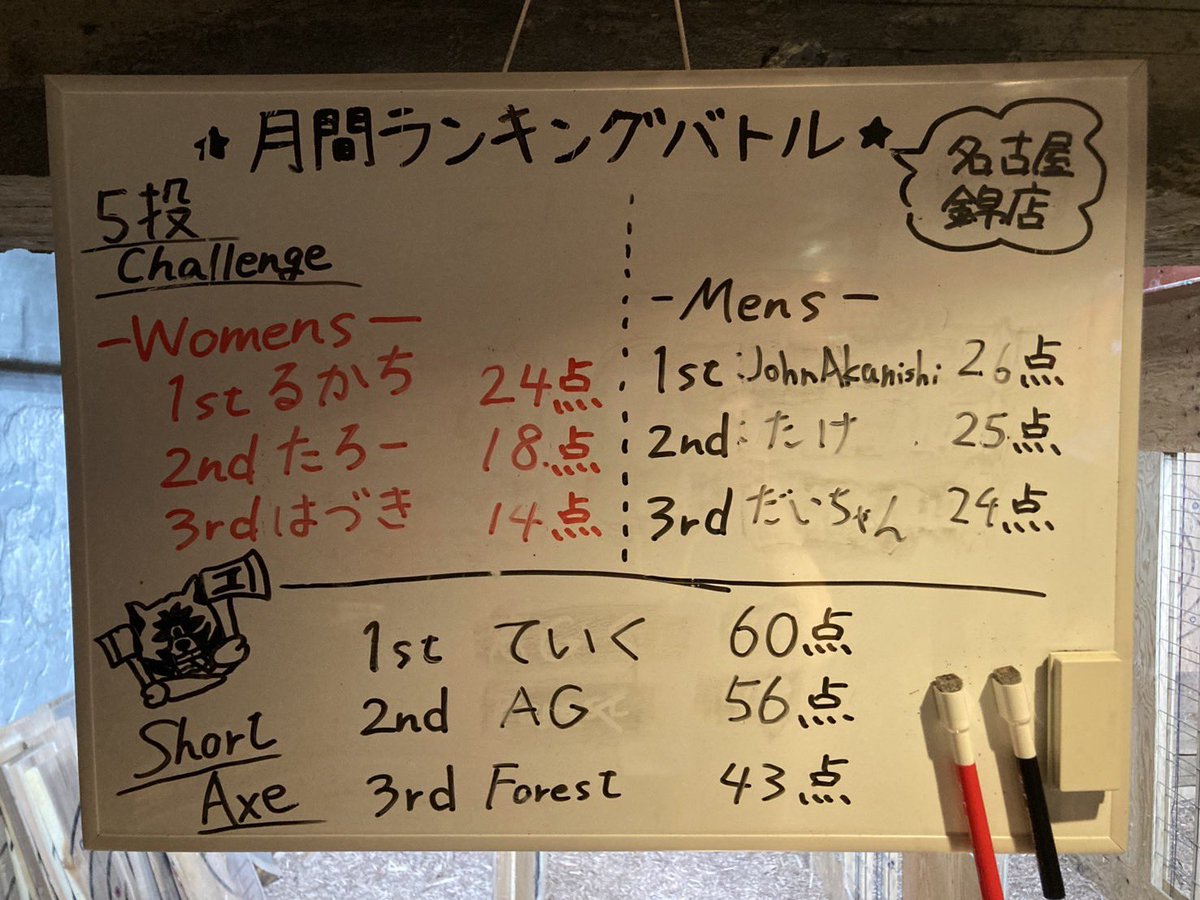 ★月間ランキングバトル★
名古屋
錦店
5投
Challenge
-Womens-
1st るかち 24点
2nd たろー 18点
3rd はづき 14点
-Mens-
1st: John Akanishi 26点
2nd: たけ 25点
3rd だいちゃん 24点
Short
Axe
1st ていく 60点
2nd AG 56点
3rd Forest 43点